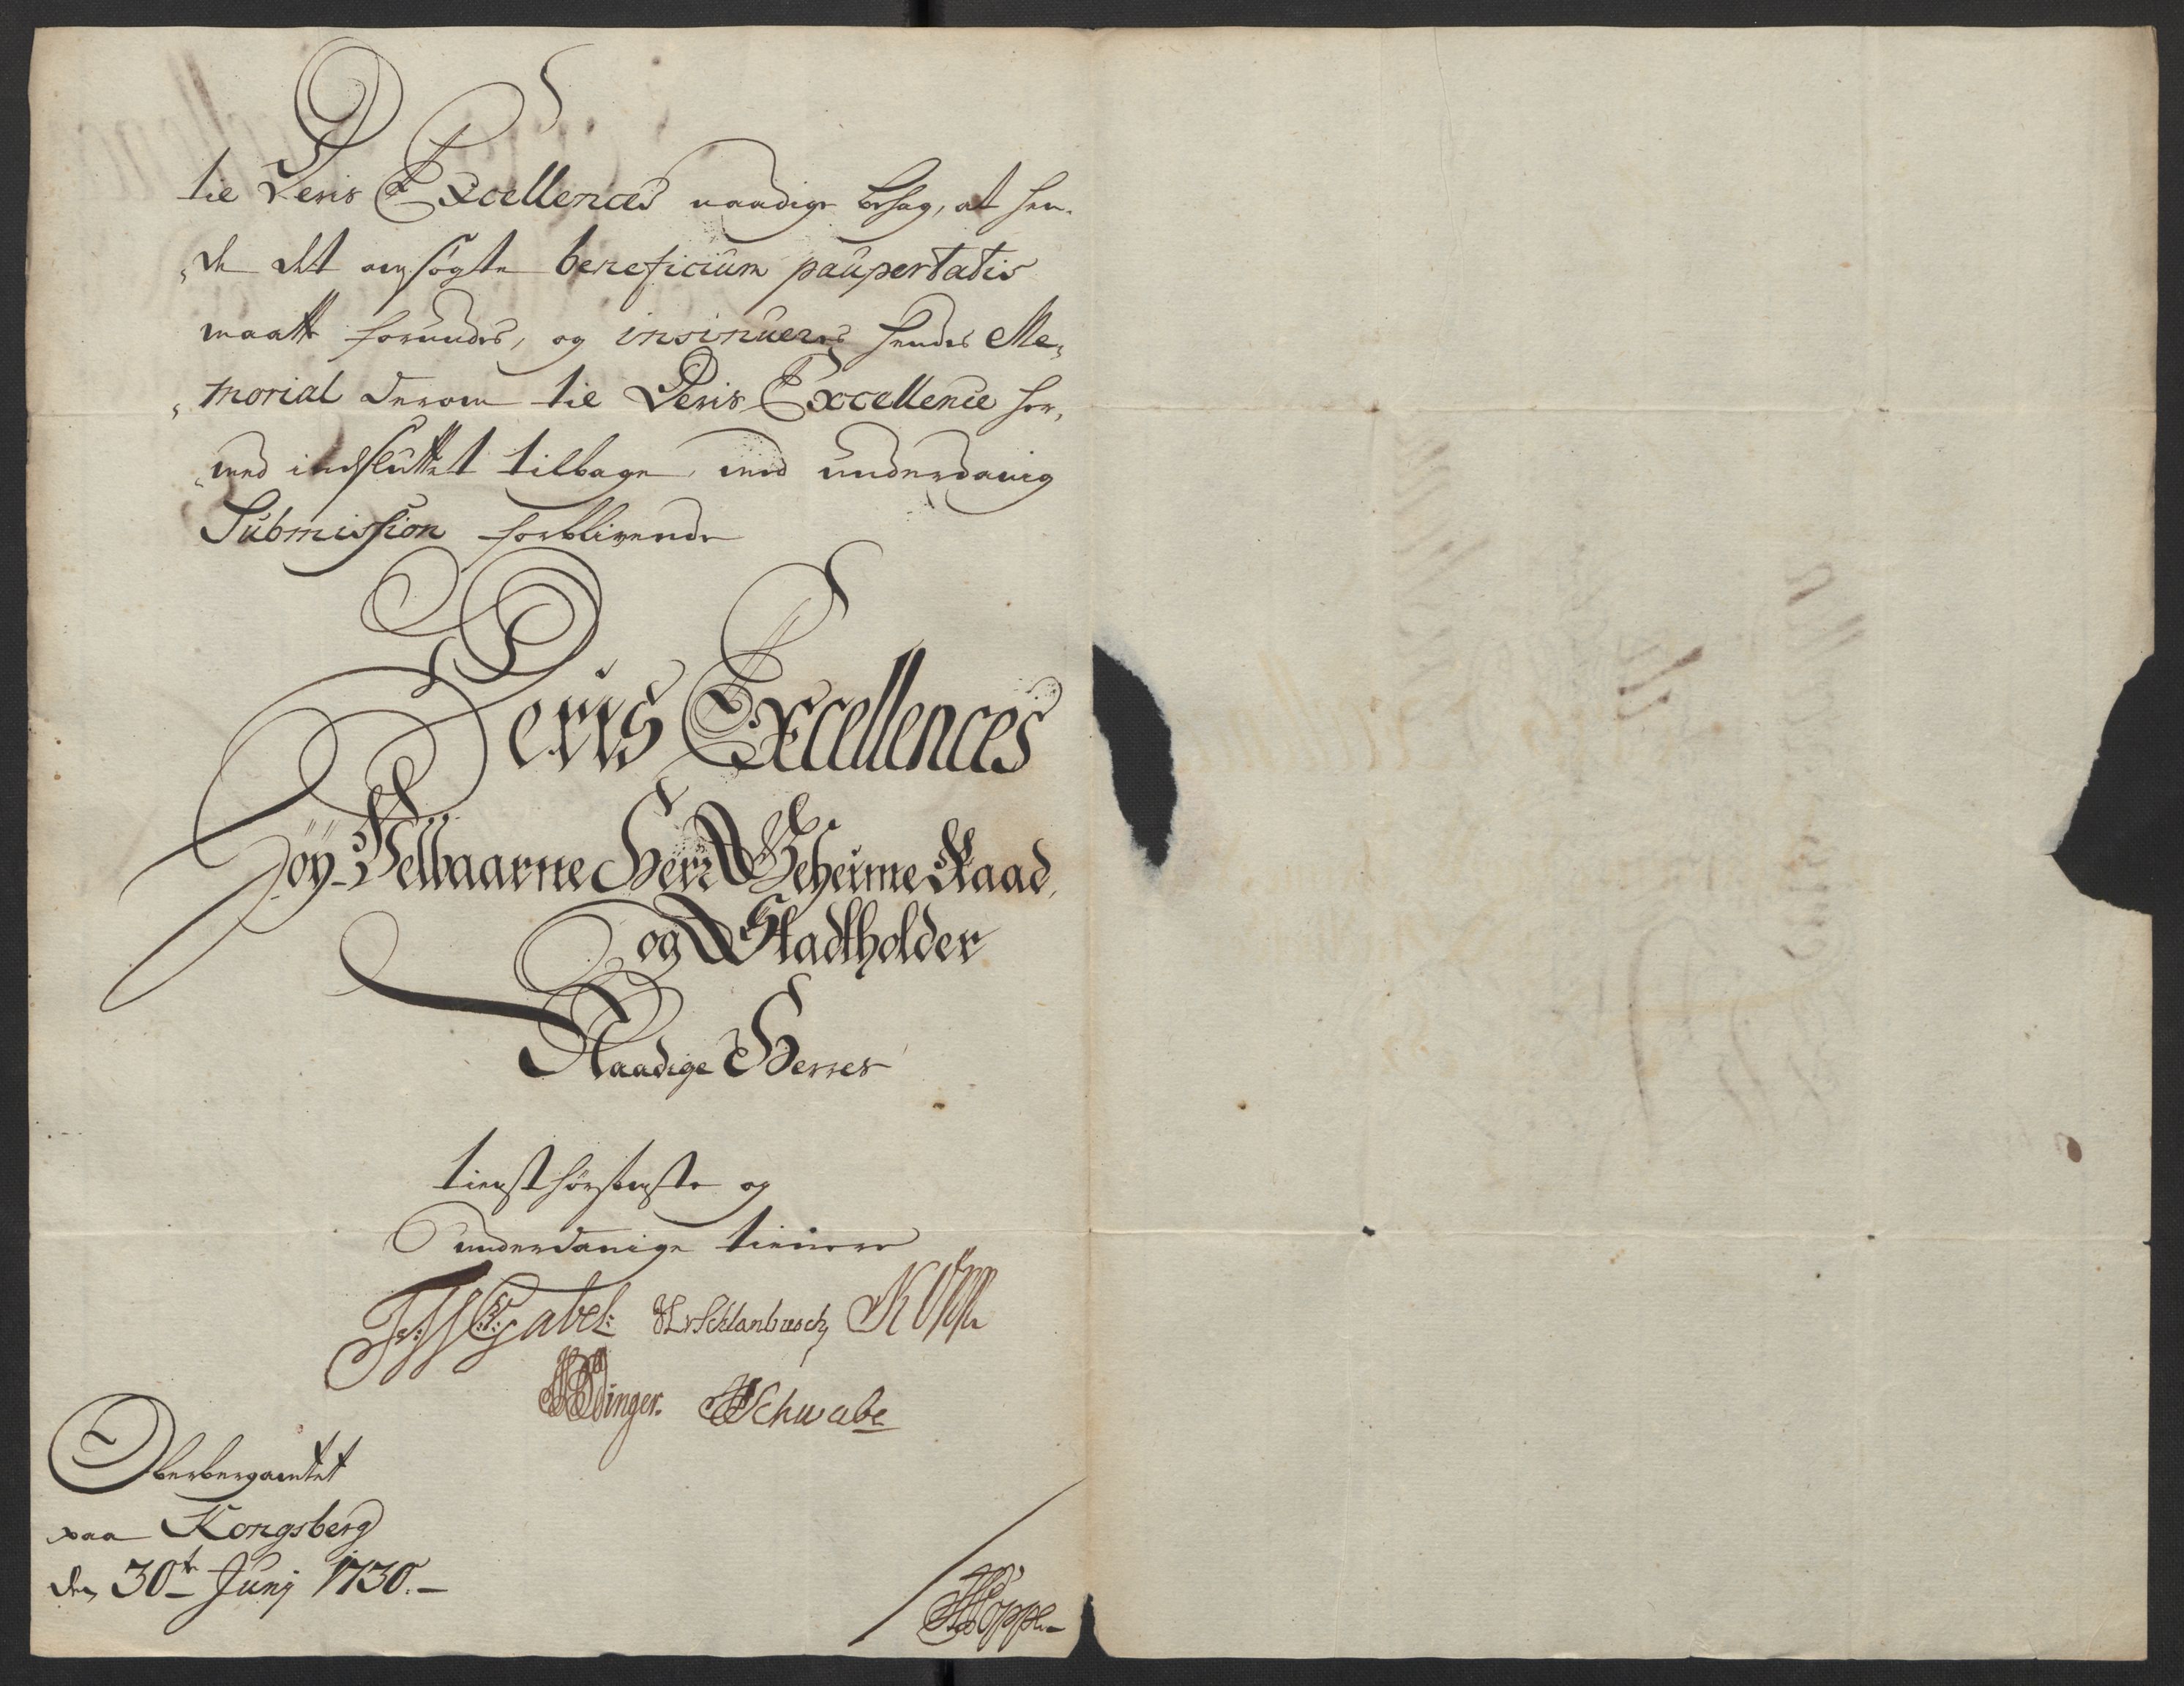 til Deris Excellences naadige behag, at hen-
„de det ansøgte beneficium paupertatis
maatte forundes, og insinueres hendes Me„
„morial derom til Deris Excellence her„
„med indsluttet tilbage, med underdanig
Submission forblivende
Deris Excellences
Høy-Velbaarne Herr Geheime Raad
og Stadtholder
Naadige Herres
tienstskyldigste og
underdanige tienere
Gabel: HvSchlanbusch
Schwabe
Oberbergamtet
paa Kongsberg
den 30te Junij 1730.-